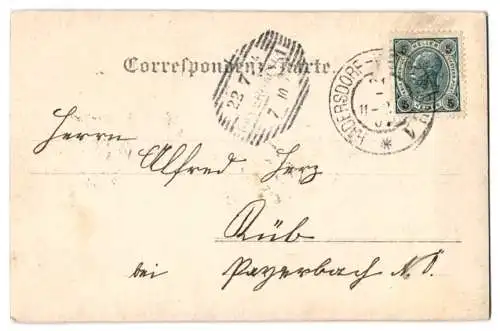 Correspondenz-Karte.
22 7
7 10
HADERSDORF
Herrn
Alfred Herz
Küb
bei Payerbach N.Ö.